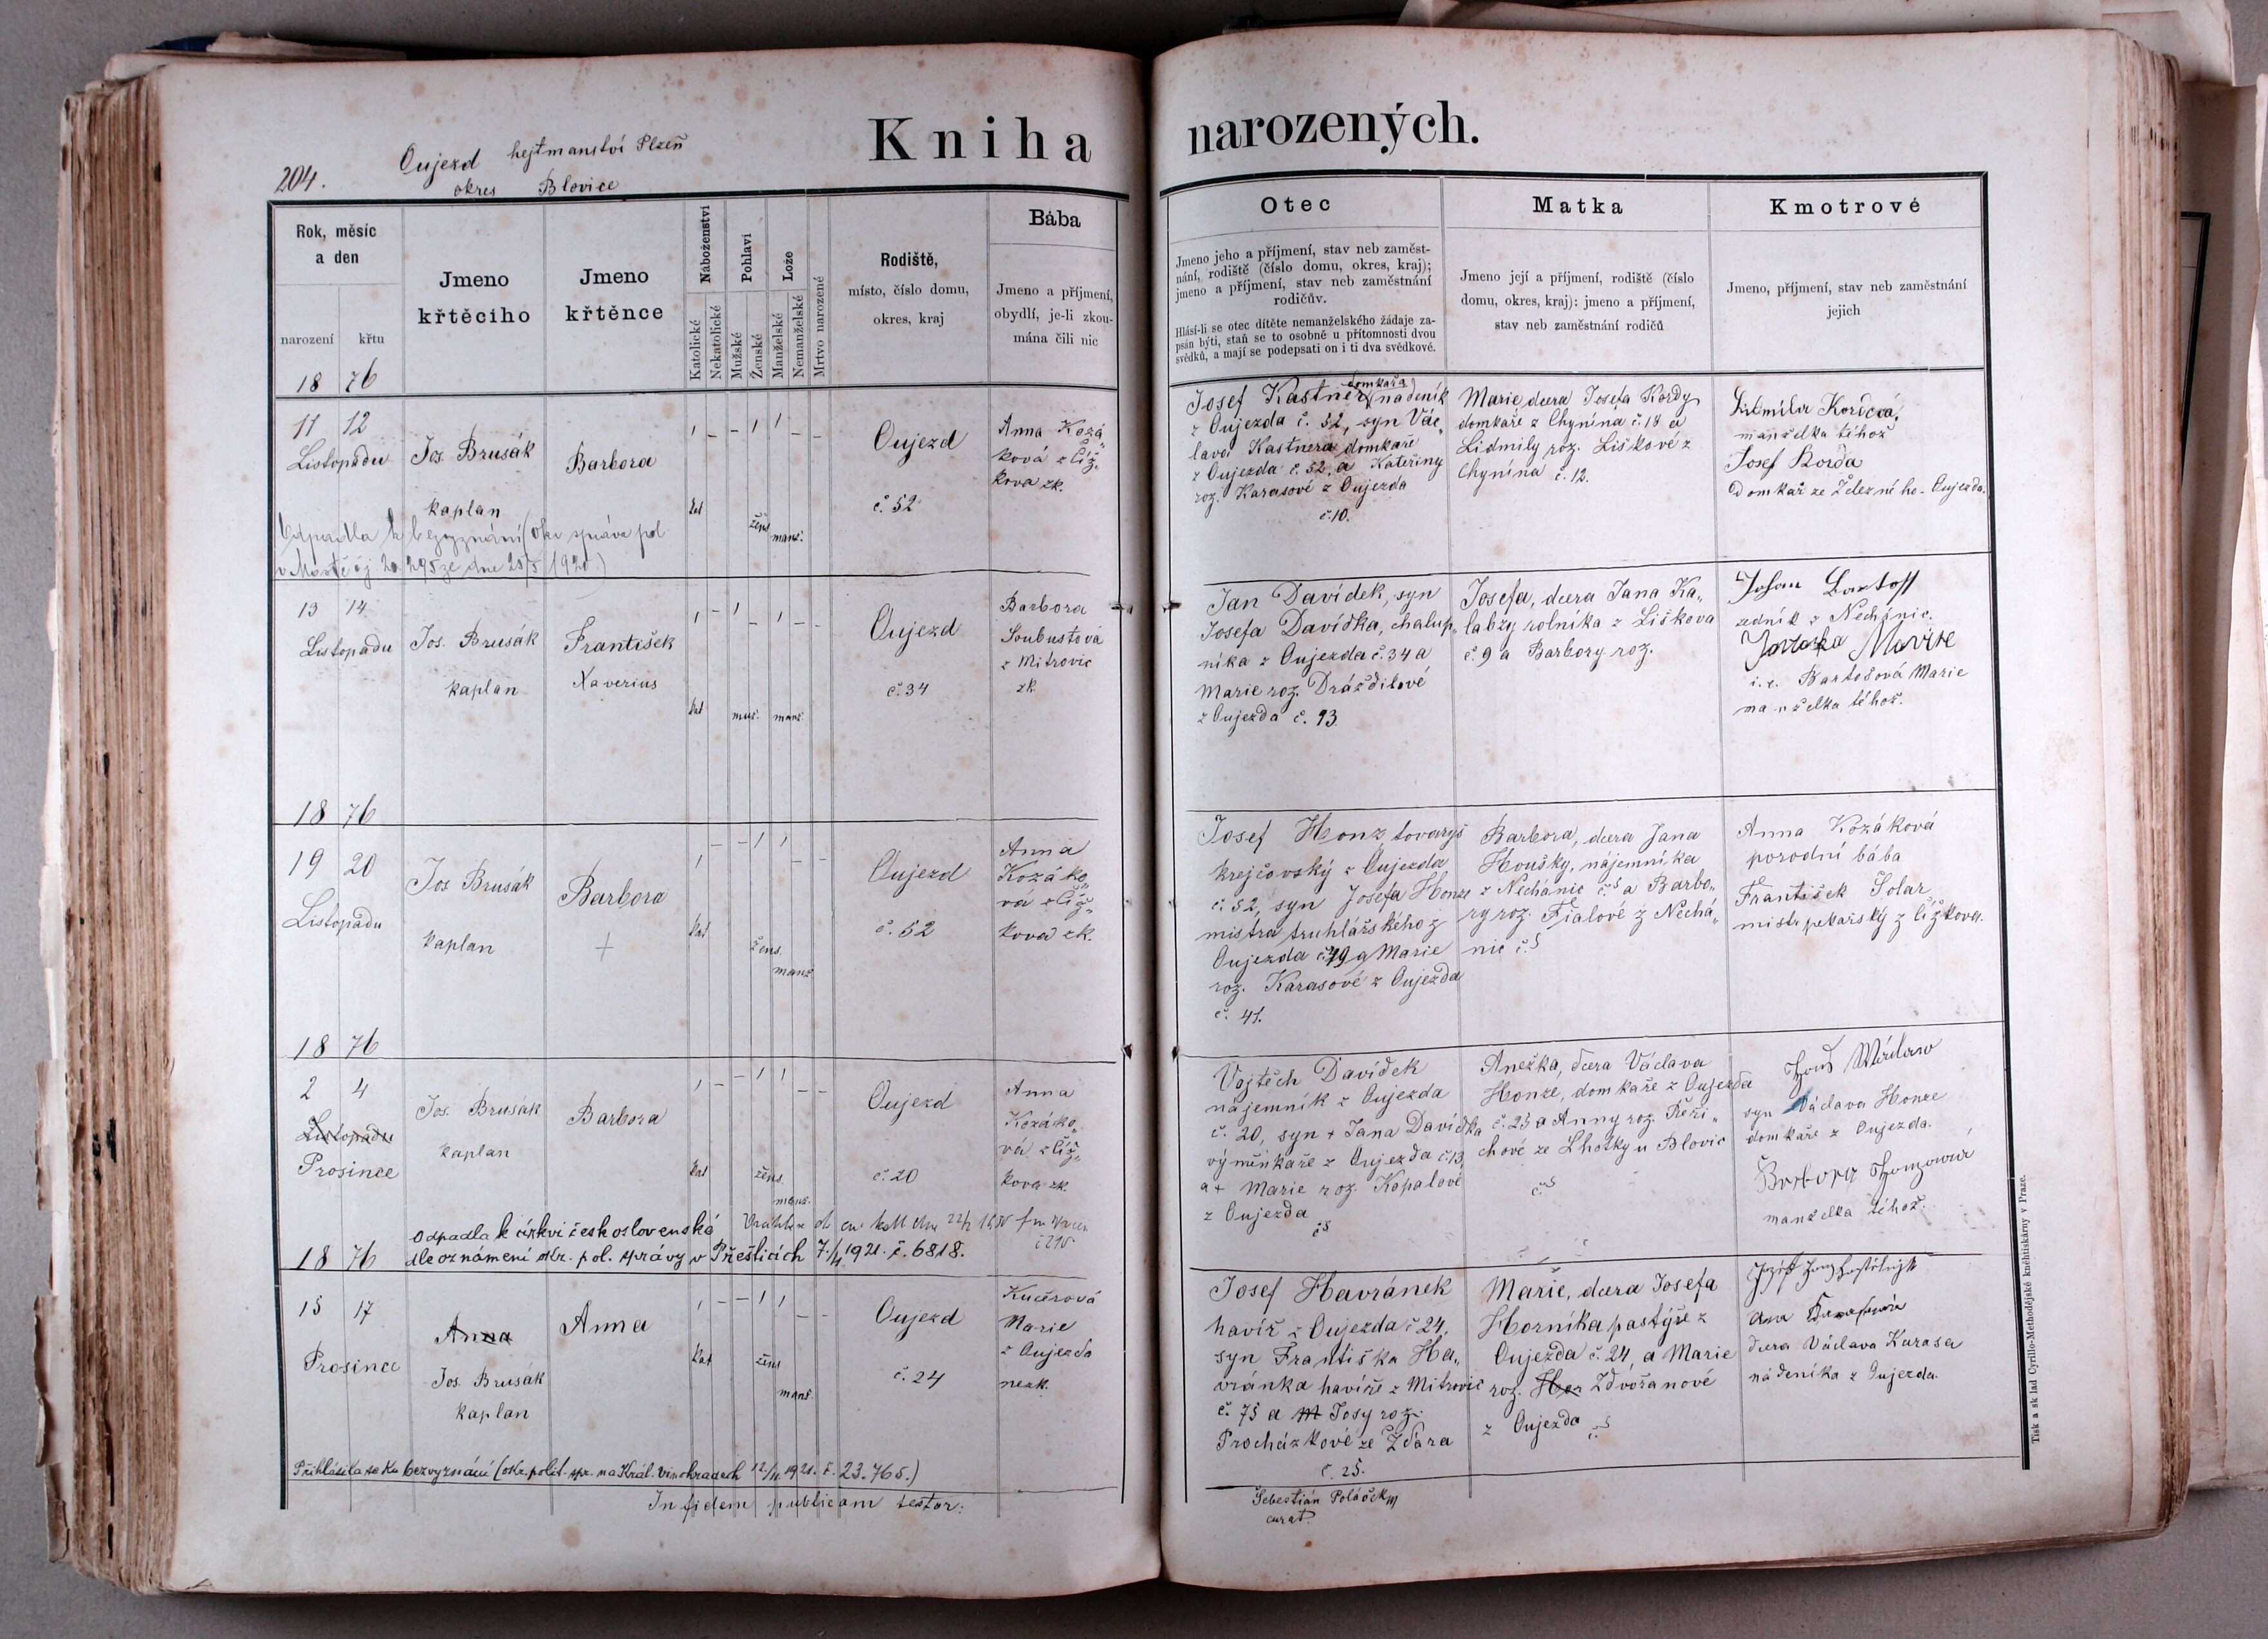 204.
Oujezd hejtmanství Plzeň
okres Blovice
Kniha narozených.
Rok, měsíc
a den
narození křtu
18 76
Jmeno
křtěcího
Jmeno
křtěnce
Náboženství
Katolické
Nekatolické
Pohlaví
Mužské
Ženské
Lože
Manželské
Nemanželské
Mrtvo narozené
Rodiště,
místo, číslo domu,
okres, kraj
Bába
Jmeno a příjmení,
obydlí, je-li zkou-
mána čili nic
Otec
Jmeno jeho a příjmení, stav neb zaměst-
nání, rodiště (číslo domu, okres, kraj);
jmeno a příjmení, stav neb zaměstnání
rodičův.
Hlásí-li se otec dítěte nemanželského žádaje za-
psán býti, staň se to osobně u přítomnosti dvou
svědků, a mají se podepsati on i ti dva svědkové.
Matka
Jmeno její a příjmení, rodiště (číslo
domu, okres, kraj): jmeno a příjmení,
stav neb zaměstnání rodičů
Kmotrové
Jmeno, příjmení, stav neb zaměstnání
jejich
11 12
Listopadu
Jos. Brusák
kaplan
Barbora
kat
žens
manž.
Oujezd
č. 52
Anna Kozá„
ková z Číž„
kova zk.
Odpadla k bezvyznání (okr. správa pol.
Josef Kastner (domkaře) nádeník
z Oujezda č. 52, syn Vác„
lava Kastnera domkaře
z Oujezda č. 52 a Kateřiny
roz. Karasové z Oujezda
č. 10.
Marie dcera Josefa Kordy
domkaře z Chynína č. 18 a
Lidmily roz. Liškové z
Chynína č. 12.
manželka téhož
Josef Korda
domkař ze Železného-Oujezda.
13 14
Listopadu
Jos. Brusák
kaplan
František
Xaverius
kat
muž.
manž.
Oujezd
č. 34
Barbora
Soubustová
z Mitrovic
zk.
Jan Davídek, syn
Josefa Davídka, chalup„
níka z Oujezda č. 34 a
Marie roz. Drážďilové
z Oujezda č. 93.
Josefa, dcera Jana Ka„
labzy rolníka z Liškova
č. 9 a Barbory roz.
zedník z Nechánic.
i. e. Bartošová Marie
manželka téhož.
18 76
19 20
Listopadu
Jos Brusák
kaplan
Barbora
+
kat
žens.
manž
Oujezd
č. 52
Anna
Kozáko„
vá z Číž„
kova zk.
Josef Honz tovaryš
krejčovský z Oujezda
č. 52, syn Josefa Honze
mistra truhlářského z
Oujezda č. 49 a Marie
roz. Karasové z Oujezda
č. 41.
Barbora, dcera Jana
Houšky, nájemníka
z Nechánic č. 5 a Barbo„
ry roz. Fialové z Nechá„
nic č. 5
Anna Kozáková
porodní bába
František Šolar
mistr pekařský z Čížkova.
18 76
2 4
Listopadu
Prosince
Jos. Brusák
kaplan
Barbora
kat
žens.
manž.
Oujezd
č. 20
Anna
Kozáko„
vá z Číž„
kova zk.
Odpadla k církvi československé
dle oznámení okr. pol. správy v Přešticích 7./4 1921. č. 6818.
Vojtěch Davídek
nájemník z Oujezda
č. 20, syn + Jana Davídka
výměnkáře z Oujezda č. 13
a + Marie roz. Kopalové
z Oujezda
Anežka, dcera Václava
Honze, domkaře z Oujezda
č. 25 a Anny roz. Řeži„
chové ze Lhotky u Blovic
syn Václava Honze
domkaře z Oujezda.
manželka téhož.
18 76
15 17
Prosince
Anna
Jos. Brusák
kaplan
Anna
kat
žens
manž.
Oujezd
č. 24
Kučerová
Marie
z Oujezda
nezk.
Přihlásila se ku bezvyznání (okr. polit. spr. na Král. Vinohradech 12/11 1921. č. 23.765.)
Josef Havránek
havíř z Oujezda č. 24,
syn Františka Ha„
vránka havíře z Mitrovic
č. 75 a M Josy roz.
Procházkové ze Žďára
č. 25.
Marie, dcera Josefa
Horníka pastýře z
Oujezda č. 24, a Marie
roz. Hor Zdvořanové
z Oujezda
dcera Václava Karasa
nádeníka z Oujezda.
In fidem publicam testor:
Sebestián Poláček
curat.
Tisk a sklad Cyrillo-Methodějské knihtiskárny v Praze.